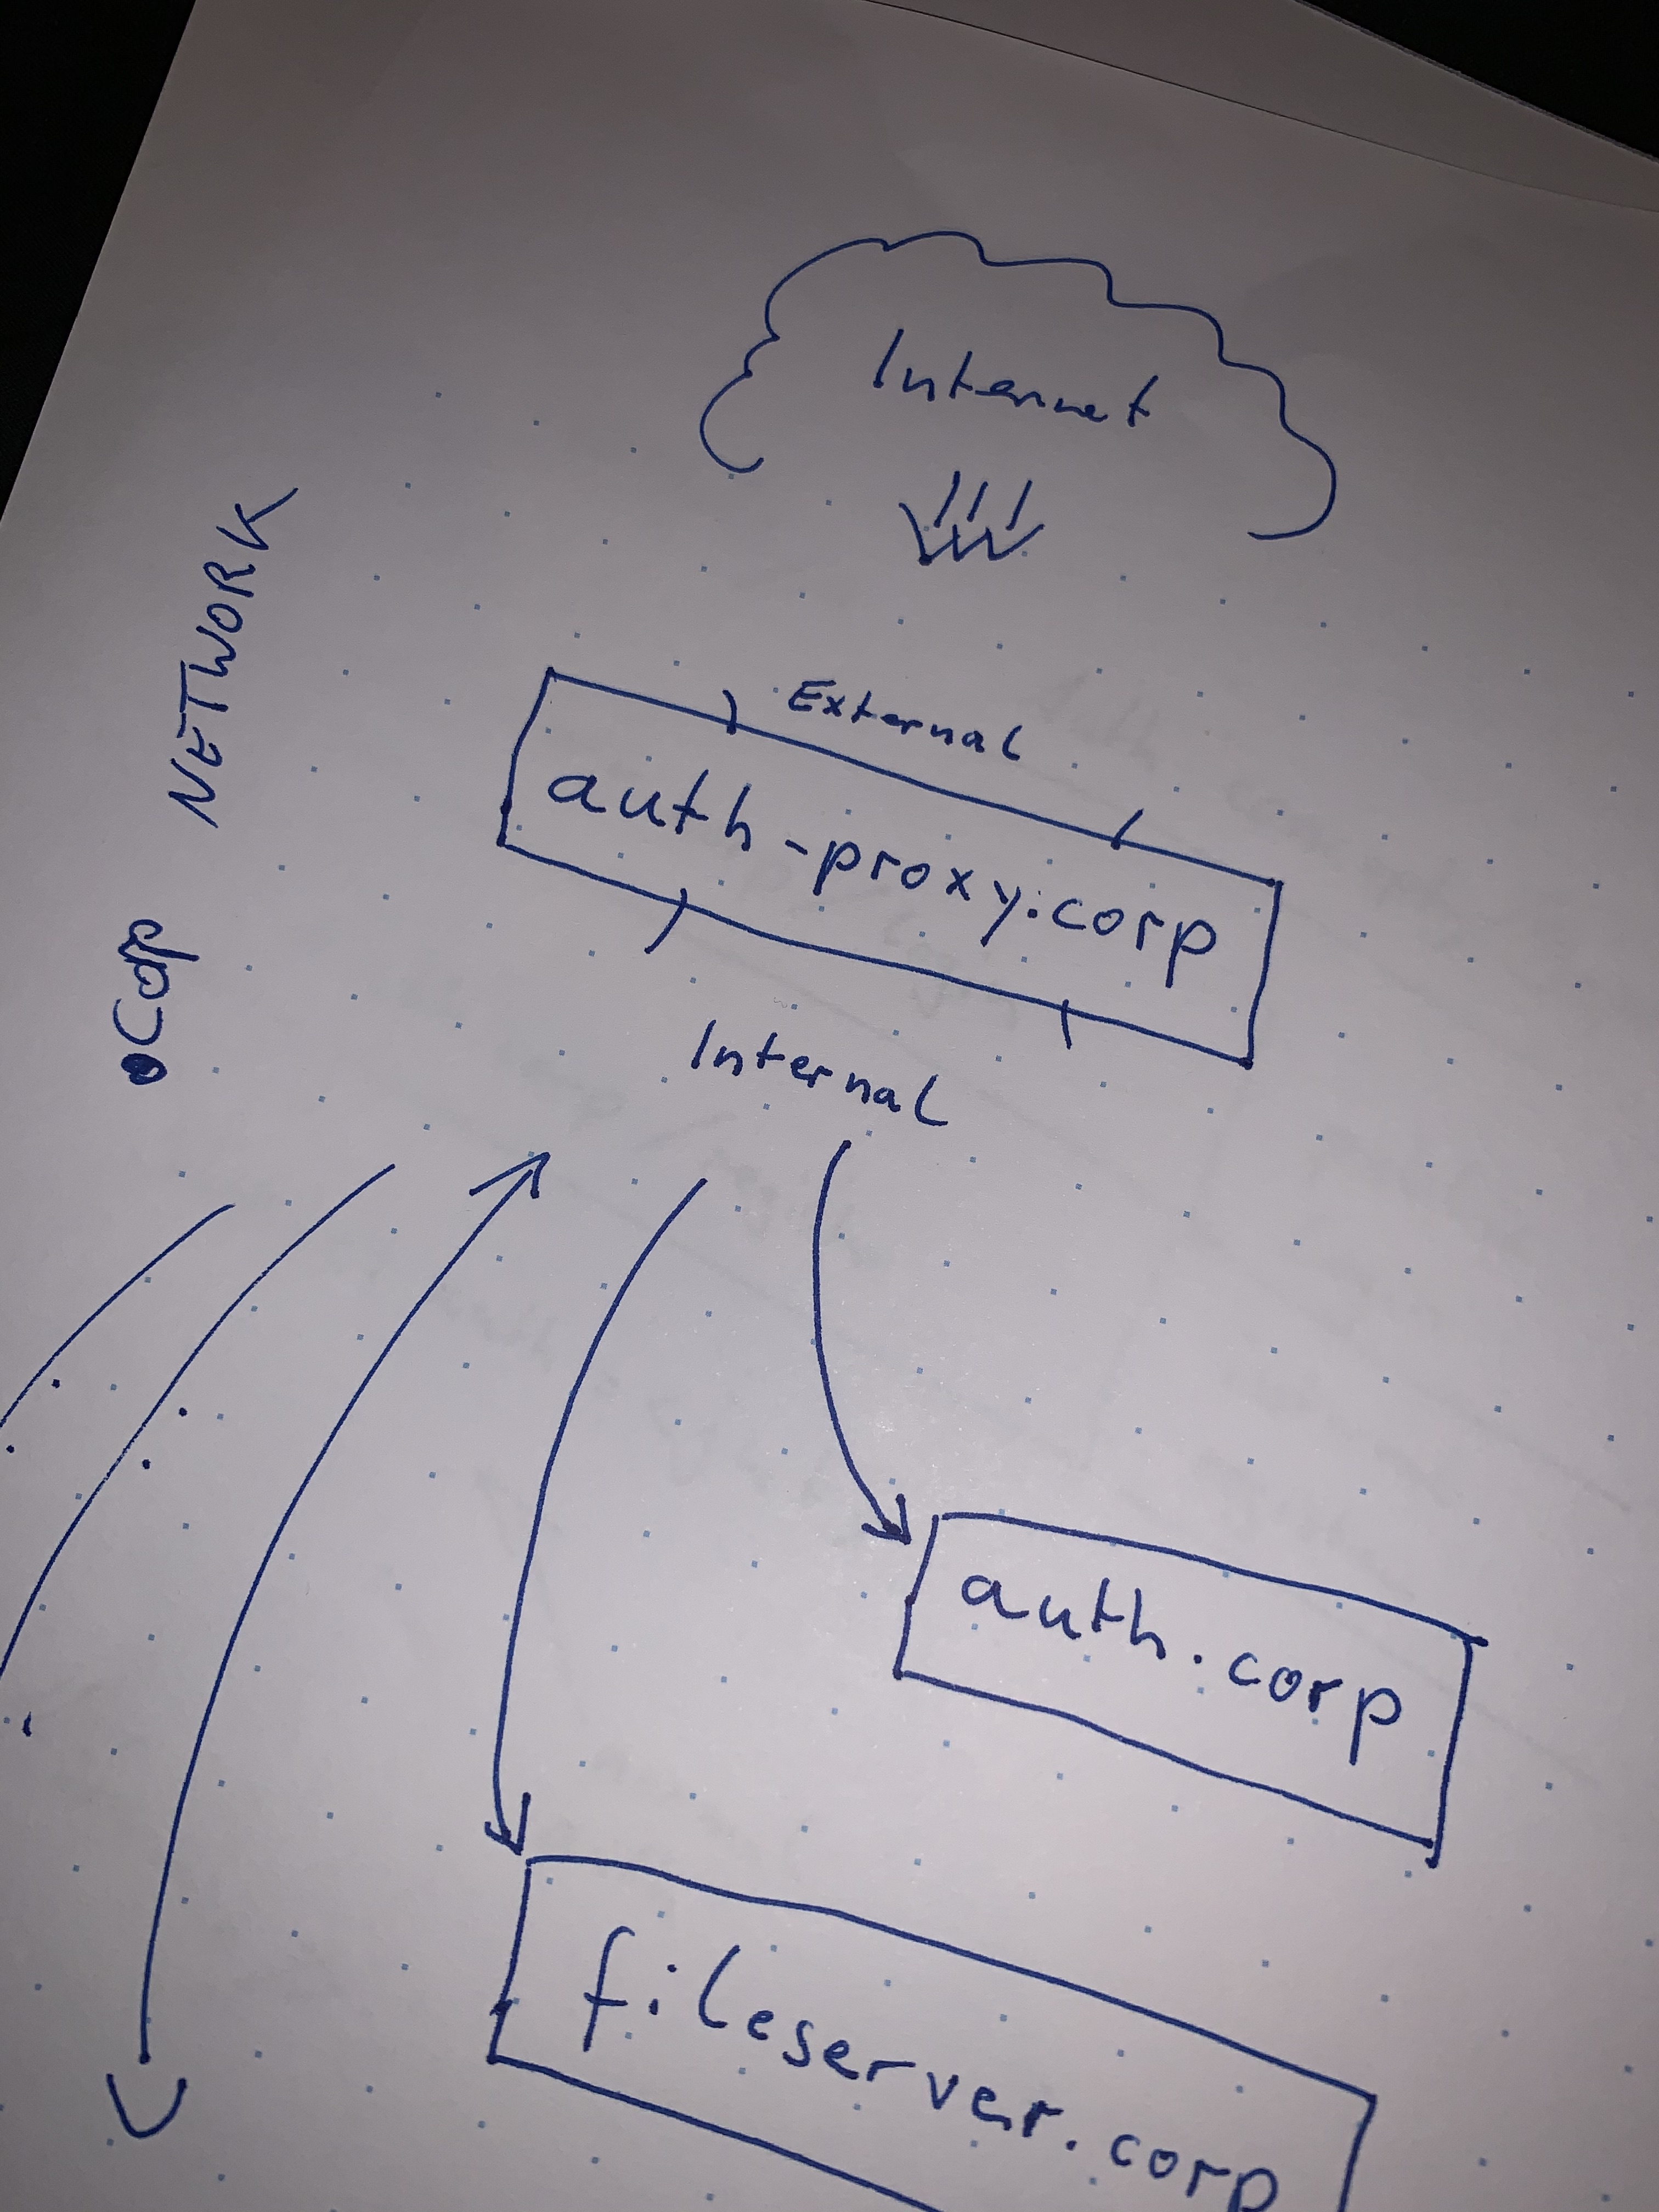 Internet
NETWORK
External
auth-proxy.corp
.Corp
Internal
auth.corp
fileserver.corp